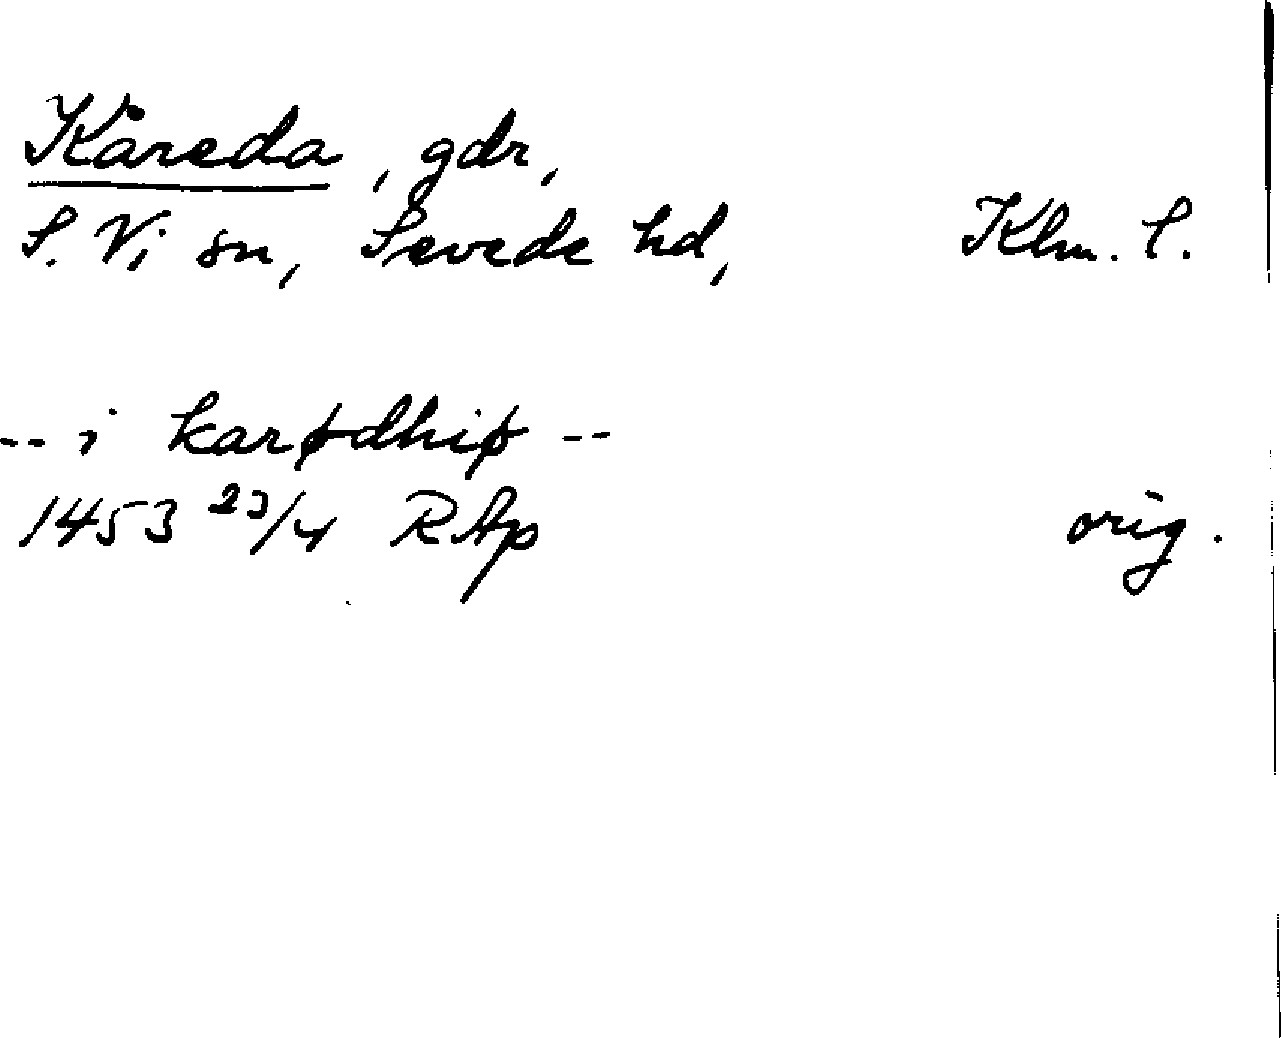 Kåreda, gdr,
S. Vi sn, Sevede hd, Klm. l.
-- i karødhiø --
1453 23/4 RAp orig.